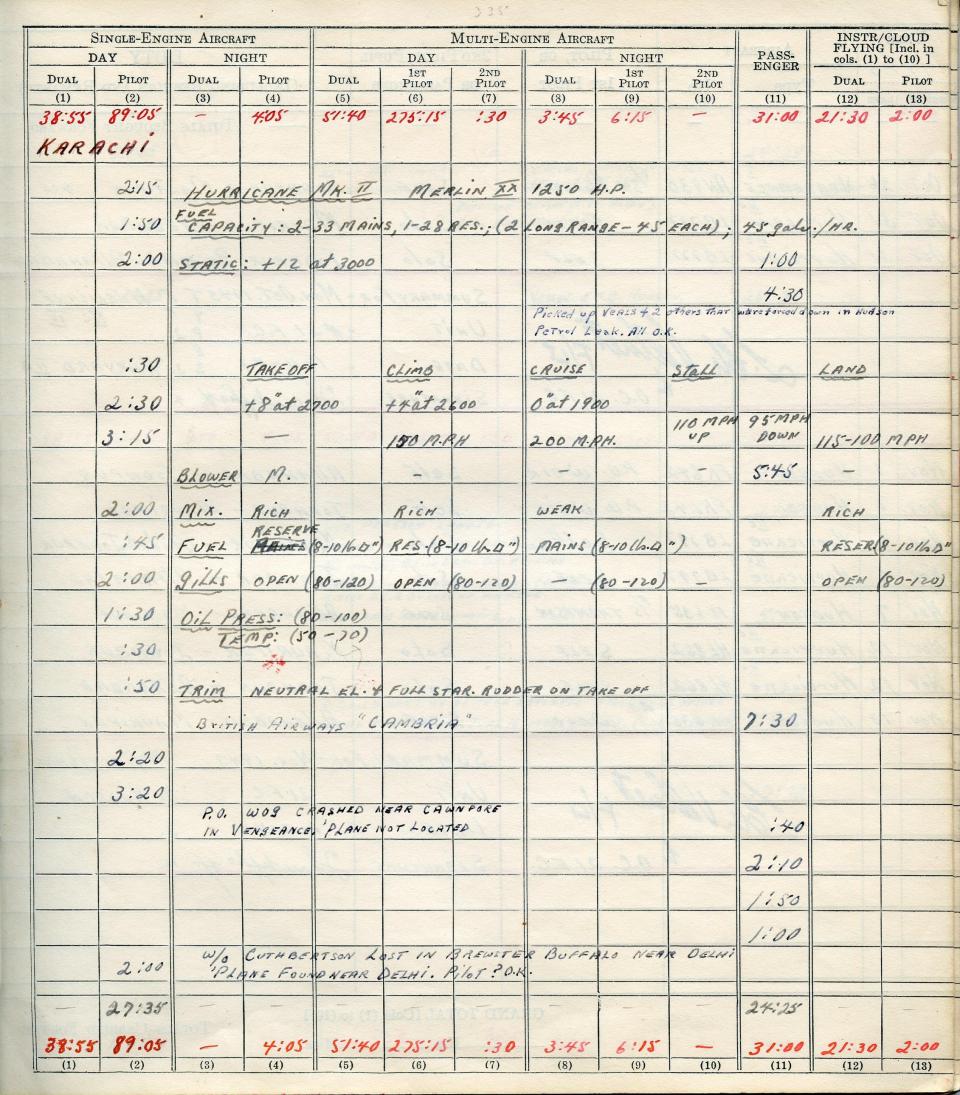 335
SINGLE-ENGINE AIRCRAFT MULTI-ENGINE AIRCRAFT PASS-ENGER INSTR/CLOUD FLYING [Incl. in cols. (1) to (10) ]
DAY NIGHT DAY NIGHT
DUAL PILOT DUAL PILOT DUAL 1ST PILOT 2ND PILOT DUAL 1ST PILOT 2ND PILOT DUAL PILOT
(1) (2) (3) (4) (5) (6) (7) (8) (9) (10) (11) (12) (13)
38:55 89:05 — 4:05 51:40 275:15 :30 3:45 6:15 — 31:00 21:30 2:00
KARACHI
2:15 HURRICANE MK. II MERLIN XX 1250 H.P.
1:50 FUEL CAPACITY: 2-33 MAINS, 1-28 RES.; (2 LONG RANGE - 45 EACH); 45 gals./HR.
2:00 STATIC: +12 at 3000 1:00
4:30
Picked up VEALS + 2 others that were forced down in Hudson
Petrol Leak. All O.K.
:30 TAKE OFF CLIMB CRUISE STALL LAND
2:30 +8" at 2700 +4" at 2600 0" at 1900
3:15 — 150 M.P.H 200 M.P.H. 110 MPH UP 95 MPH DOWN 115-100 MPH
BLOWER M. - - - 5:45 -
2:00 MIX. RICH RICH WEAK RICH
RESERVE
:45 FUEL MAINS (8-10 lb.□") RES-(8-10 lb.□") MAINS (8-10 lb.□") RESER(8-10 lb.□"
2:00 gills OPEN (80-120) OPEN (80-120) — (80-120) - OPEN (80-120)
1:30 OIL PRESS: (80-100)
TEMP: (50-70)
:30
:50 TRIM NEUTRAL EL. + FULL STAR. RUDDER ON TAKE OFF
BRITISH AIRWAYS "CAMBRIA" 7:30
2:20
3:20
P.O. WOG CRASHED NEAR CAWNPORE
IN VENGEANCE. 'PLANE NOT LOCATED :40
2:10
1:50
1:00
W/O CUTHBERTSON LOST IN BREWSTER BUFFALO NEAR DELHI
2:00 'PLANE FOUND NEAR DELHI. PILOT? O.K.
— 27:35 — — — — — — — — 24:25 — —
38:55 89:05 — 4:05 51:40 275:15 :30 3:45 6:15 — 31:00 21:30 2:00
(1) (2) (3) (4) (5) (6) (7) (8) (9) (10) (11) (12) (13)